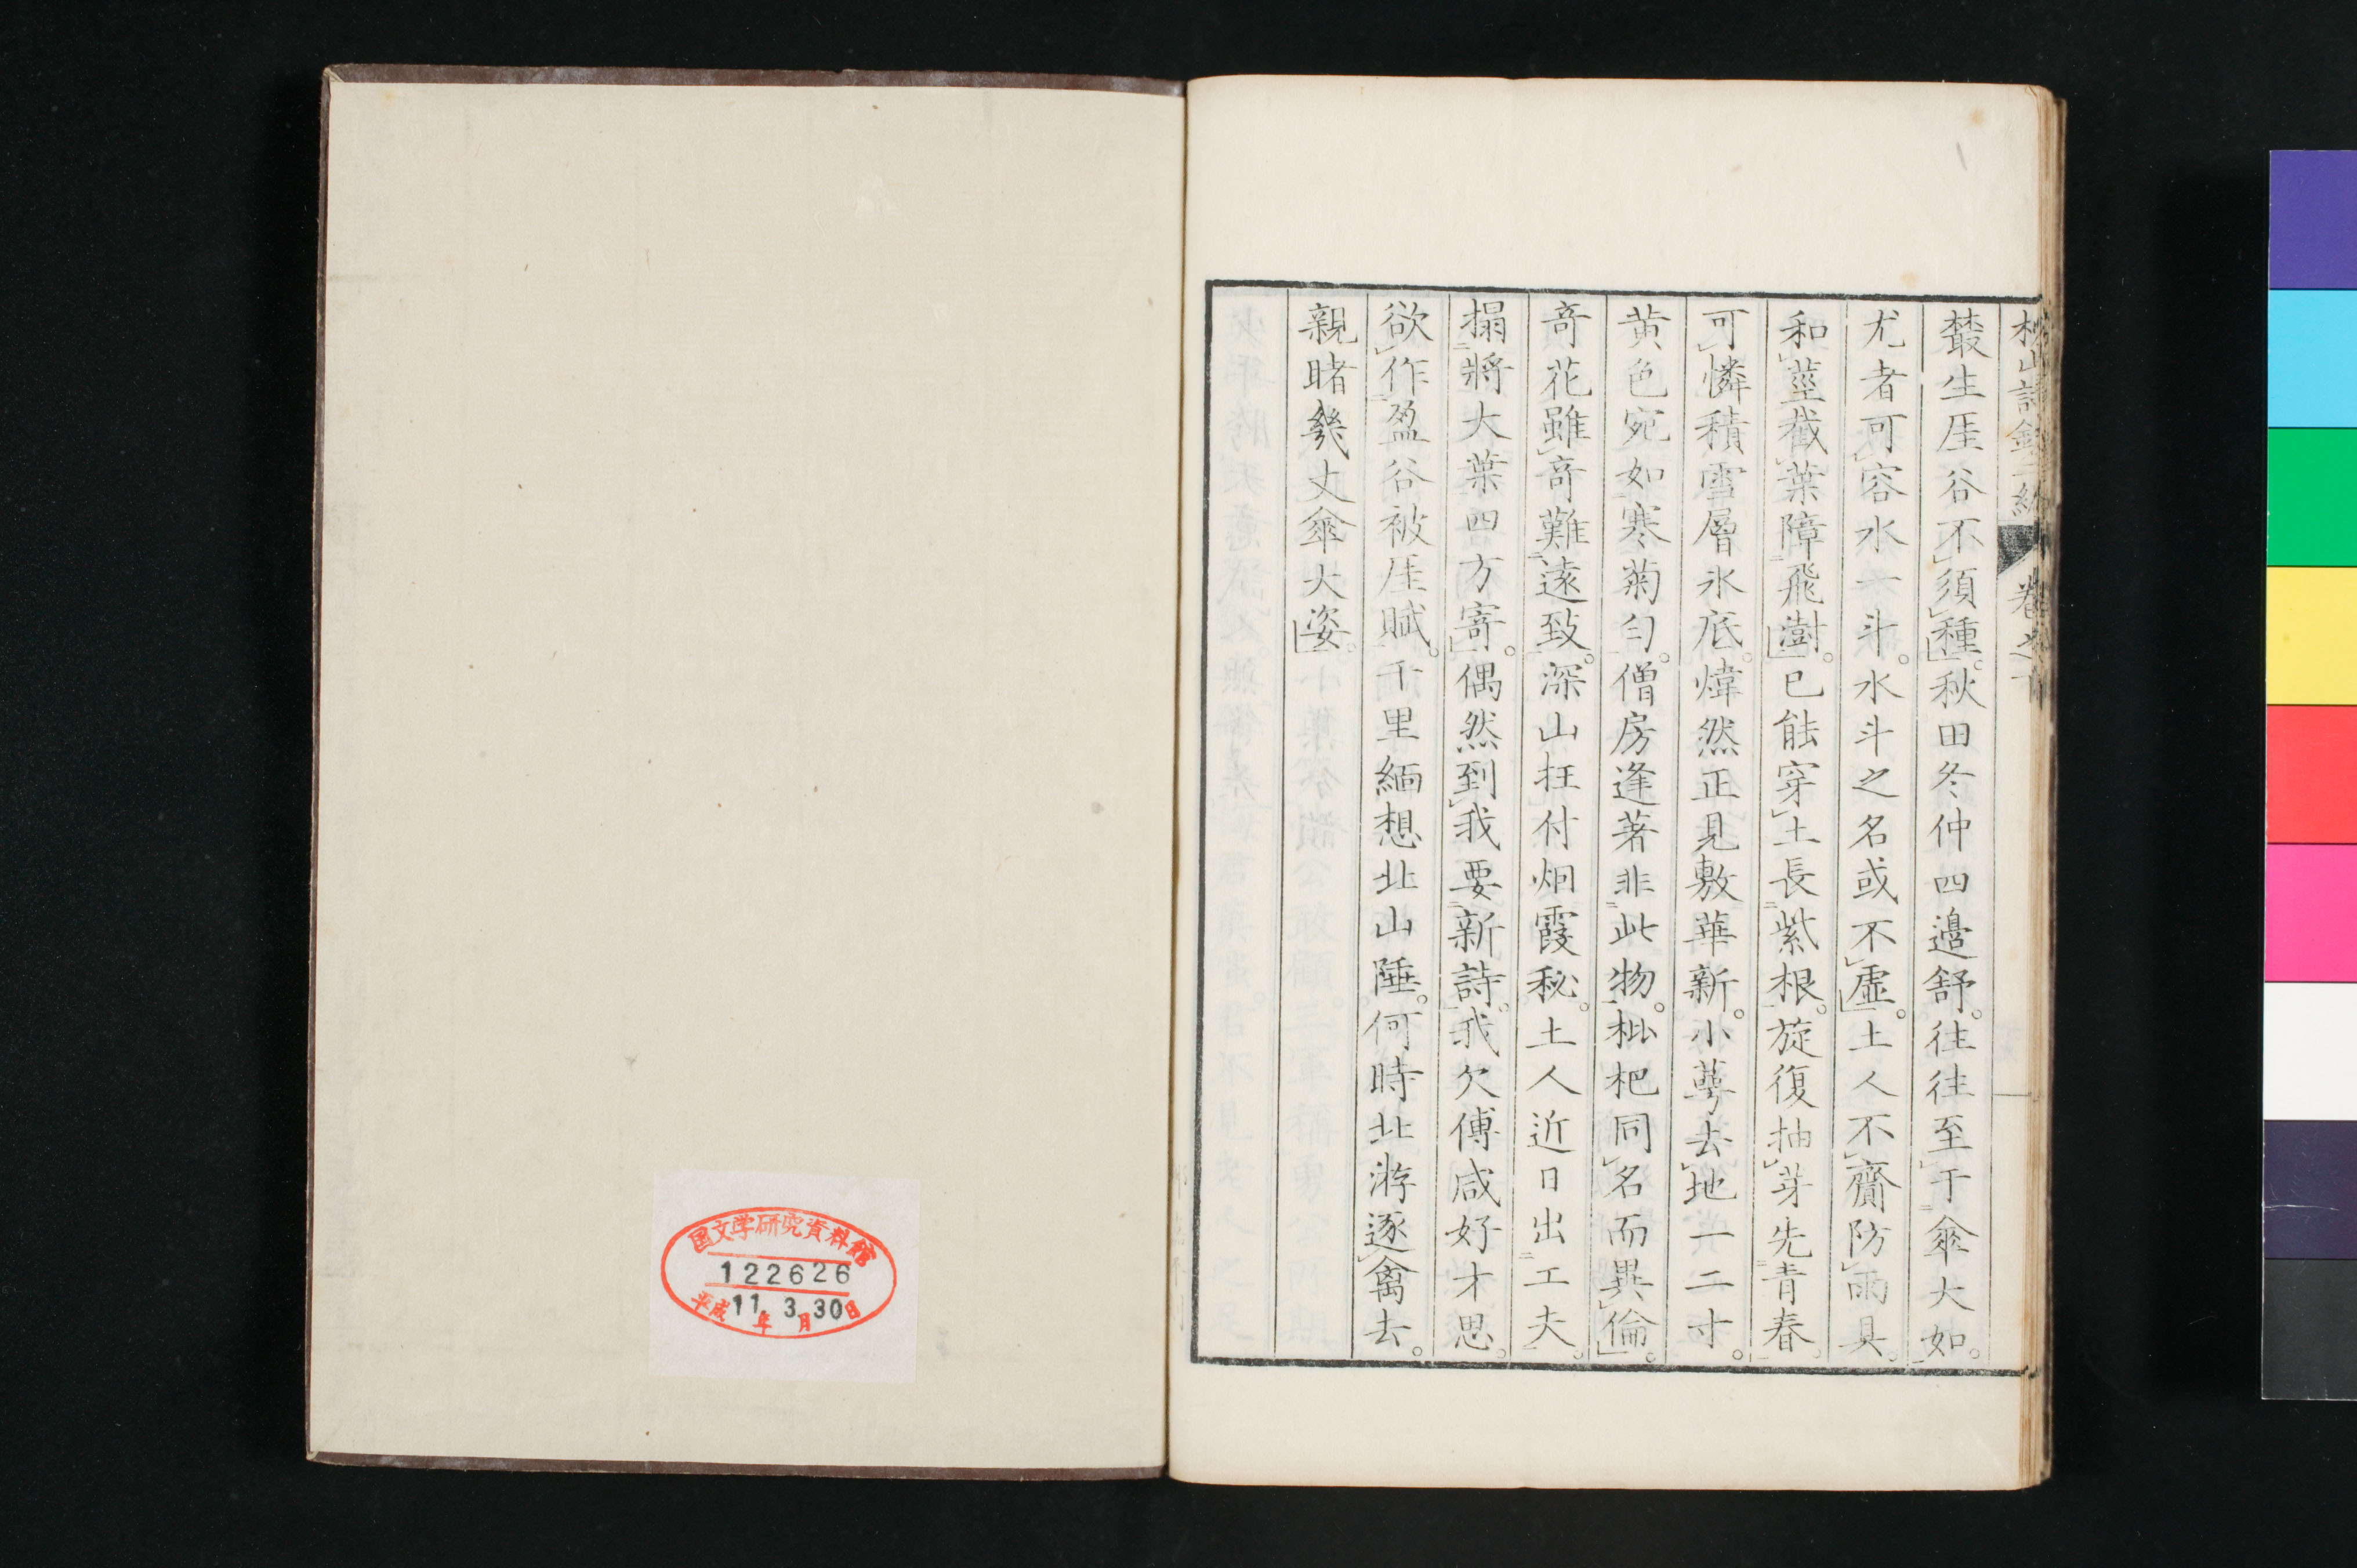 山詩鈔二編 卷之下
蘩生厓谷不須種秋田冬仲四邊舒往往至于傘大如
尤者可容水一斗水斗之名或不虛土人不齎防雨具
和莖截葉障飛澍已能穿土長紫根旋復抽芽先青春
可憐積雪層氷底煒然正見敷華新小萼去地一二寸
黄色宛如寒菊勻僧房逢著非此物枇杷同名而異倫
奇花雖奇難遠致深山抂付烟霞秘土人近日出工夫
搨將大葉四方寄偶然到我要新詩我欠傅咸好才思
欲作盈谷被厓賦千里緬想北山陲何時北游逐禽去
親睹幾丈傘大姿
国文学研究資料館
122626
平成11年3月30日